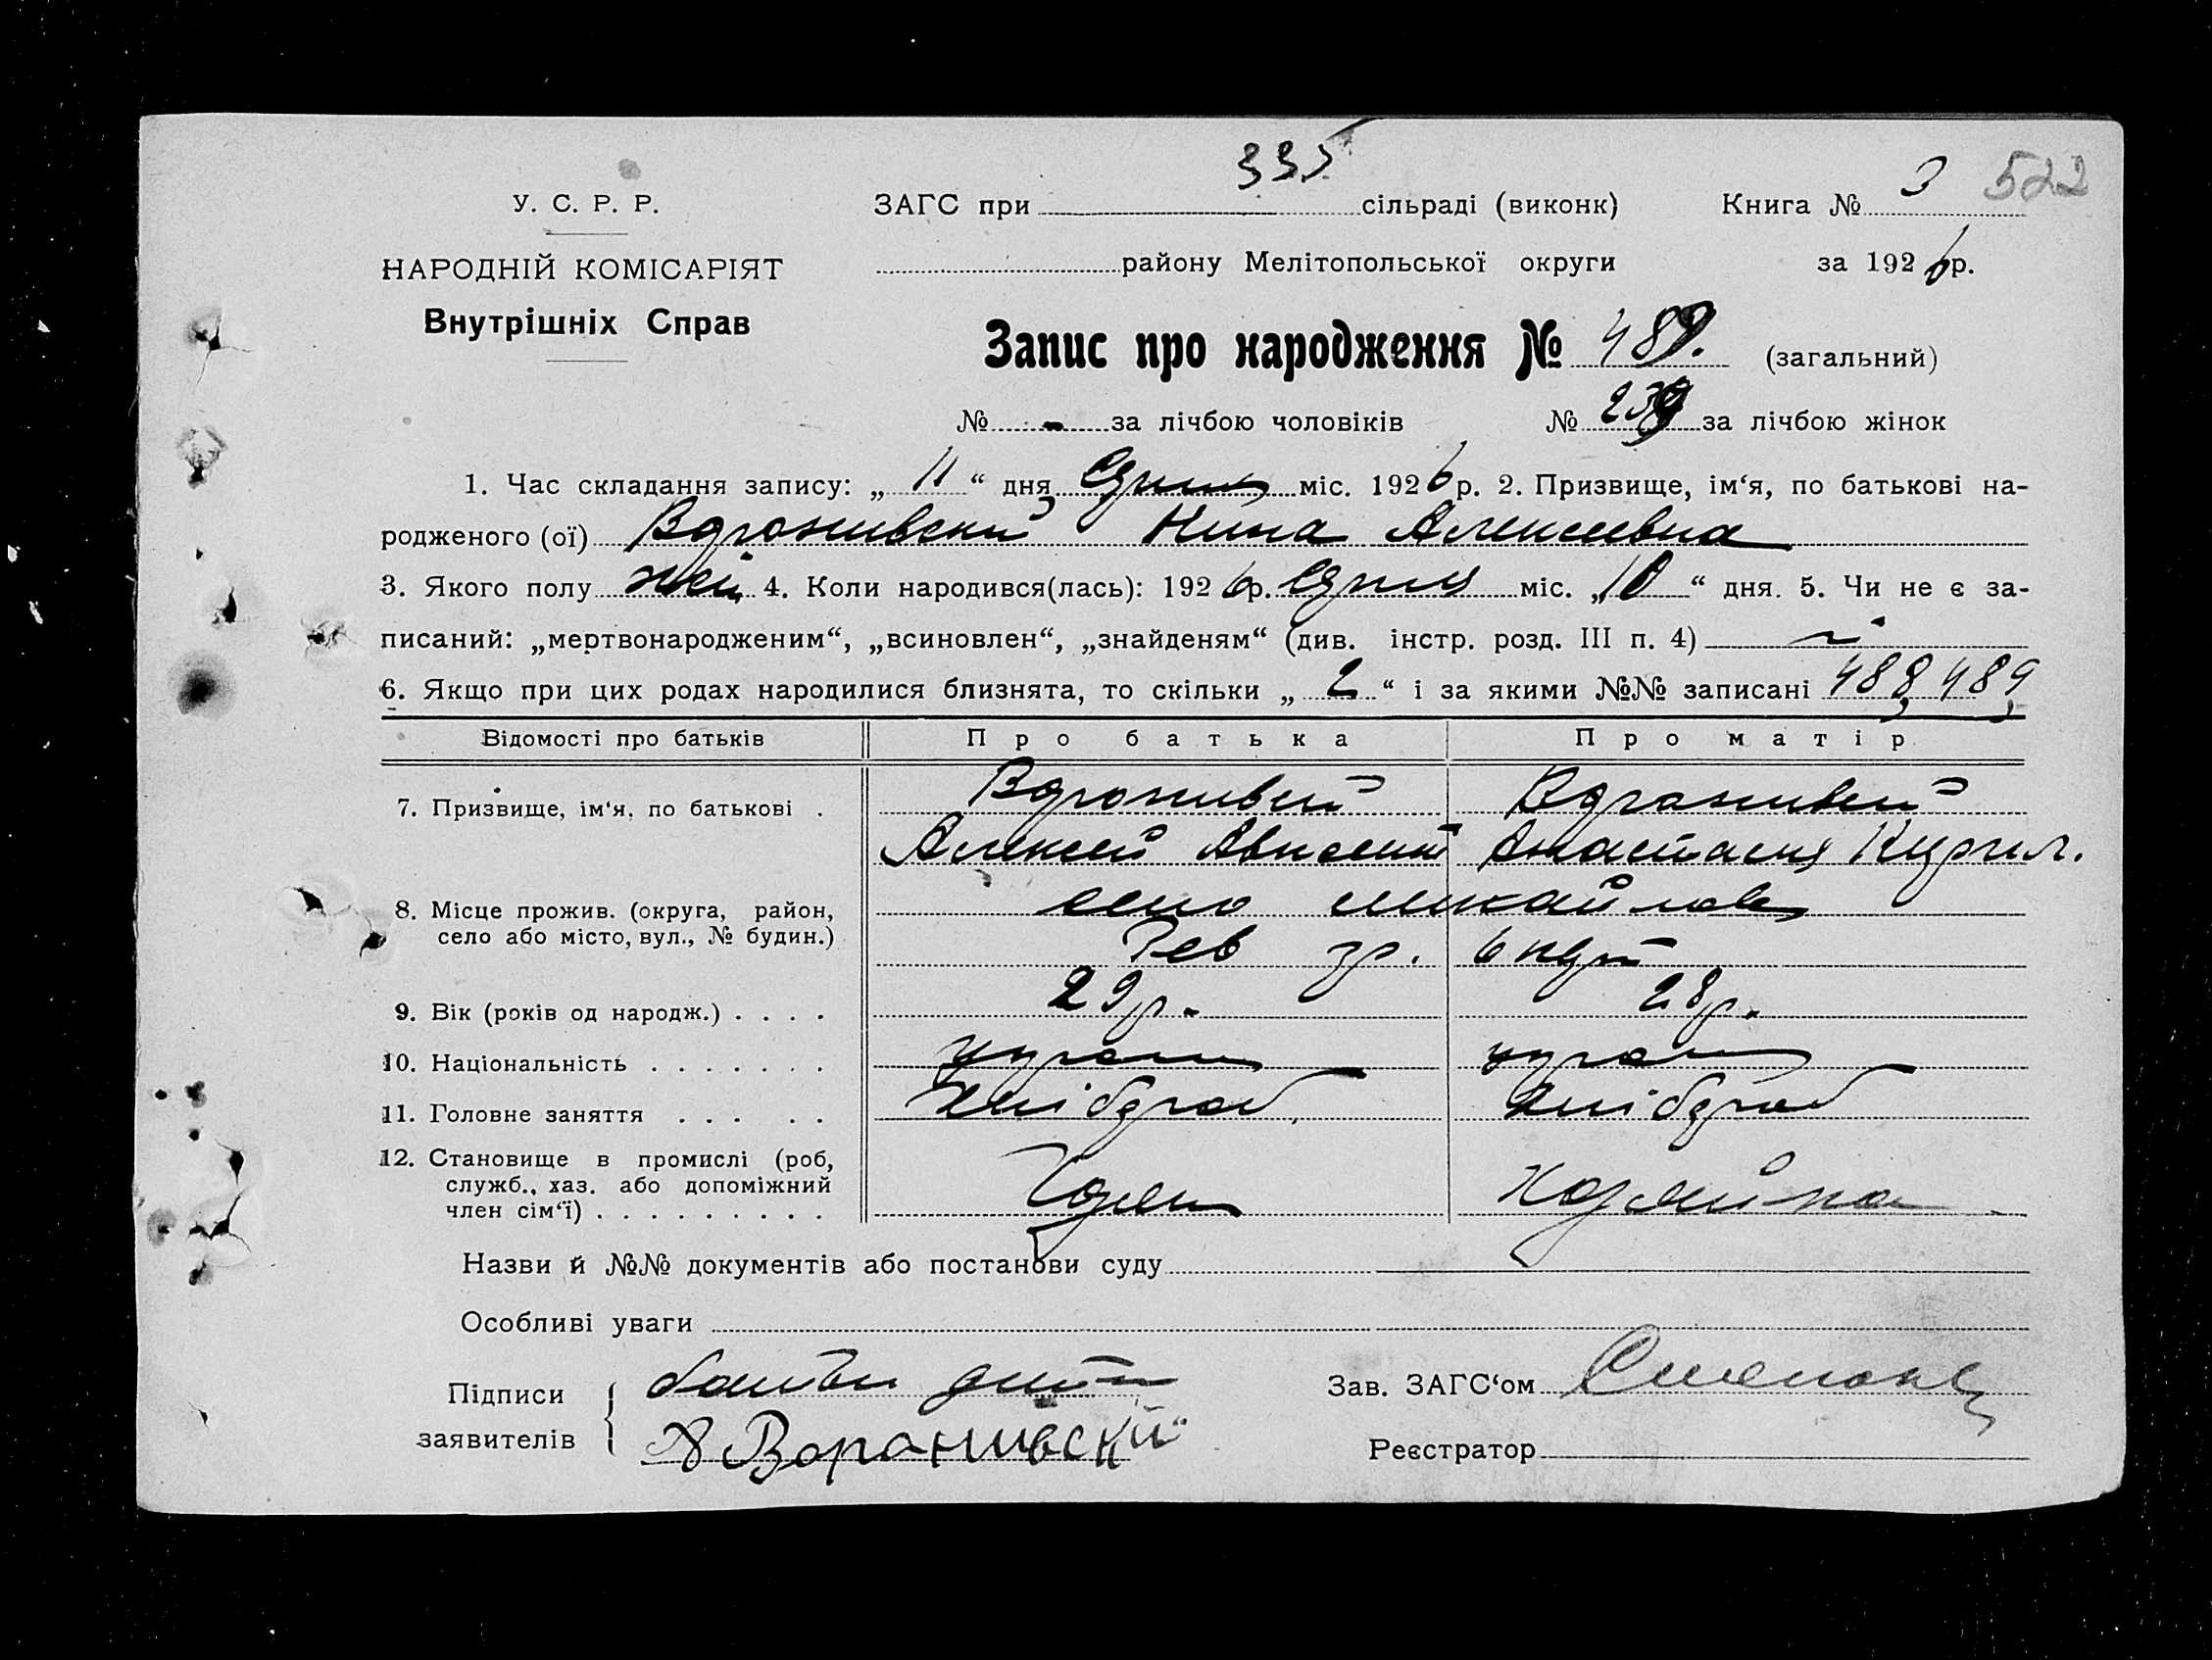 335
У. С. Р. Р. ЗАГС при сільраді (виконк) Книга № 3 522
НАРОДНІЙ КОМІСАРІЯТ району Мелітопольської округи за 1926 р.
Внутрішніх Справ
Запис про народження № 489. (загальний)
№ - за лічбою чоловіків № 239 за лічбою жінок
1. Час складання запису: „ 11 “ дня міс. 1926 р. 2. Призвище, ім‘я, по батькові на-
родженого (ої) Нина Алексеевна
3. Якого полу жен 4. Коли народився(лась): 1926 р. міс. „ 10 “ дня. 5. Чи не є за-
писаний: „мертвонародженим“, „всиновлен“, „знайденям“ (див. інстр. розд. III п. 4)
6. Якщо при цих родах народилися близнята, то скільки „ 2 “ і за якими №№ записані 488, 489,
Відомості про батьків Про батька Про матір
7. Призвище, ім‘я, по батькові .
Алексей Анастасия Кирил.
8. Місце прожив. (округа, район, село
село або місто, вул., № будин.) Рев
9. Вік (років од народж.) . . . . 29 р. 28 р.
10. Національність . . . . . . .
11. Головне заняття . . . . . Хлібороб Хлібороб
12. Становище в промислі (роб,
служб., хаз. або допоміжний
член сім‘ї) . . . . . . . . . Хозяин Хозяйка
Назви й №№ документів або постанови суду
Особливі уваги
Підписи Зав. ЗАГС‘ом
заявителів Реєстратор